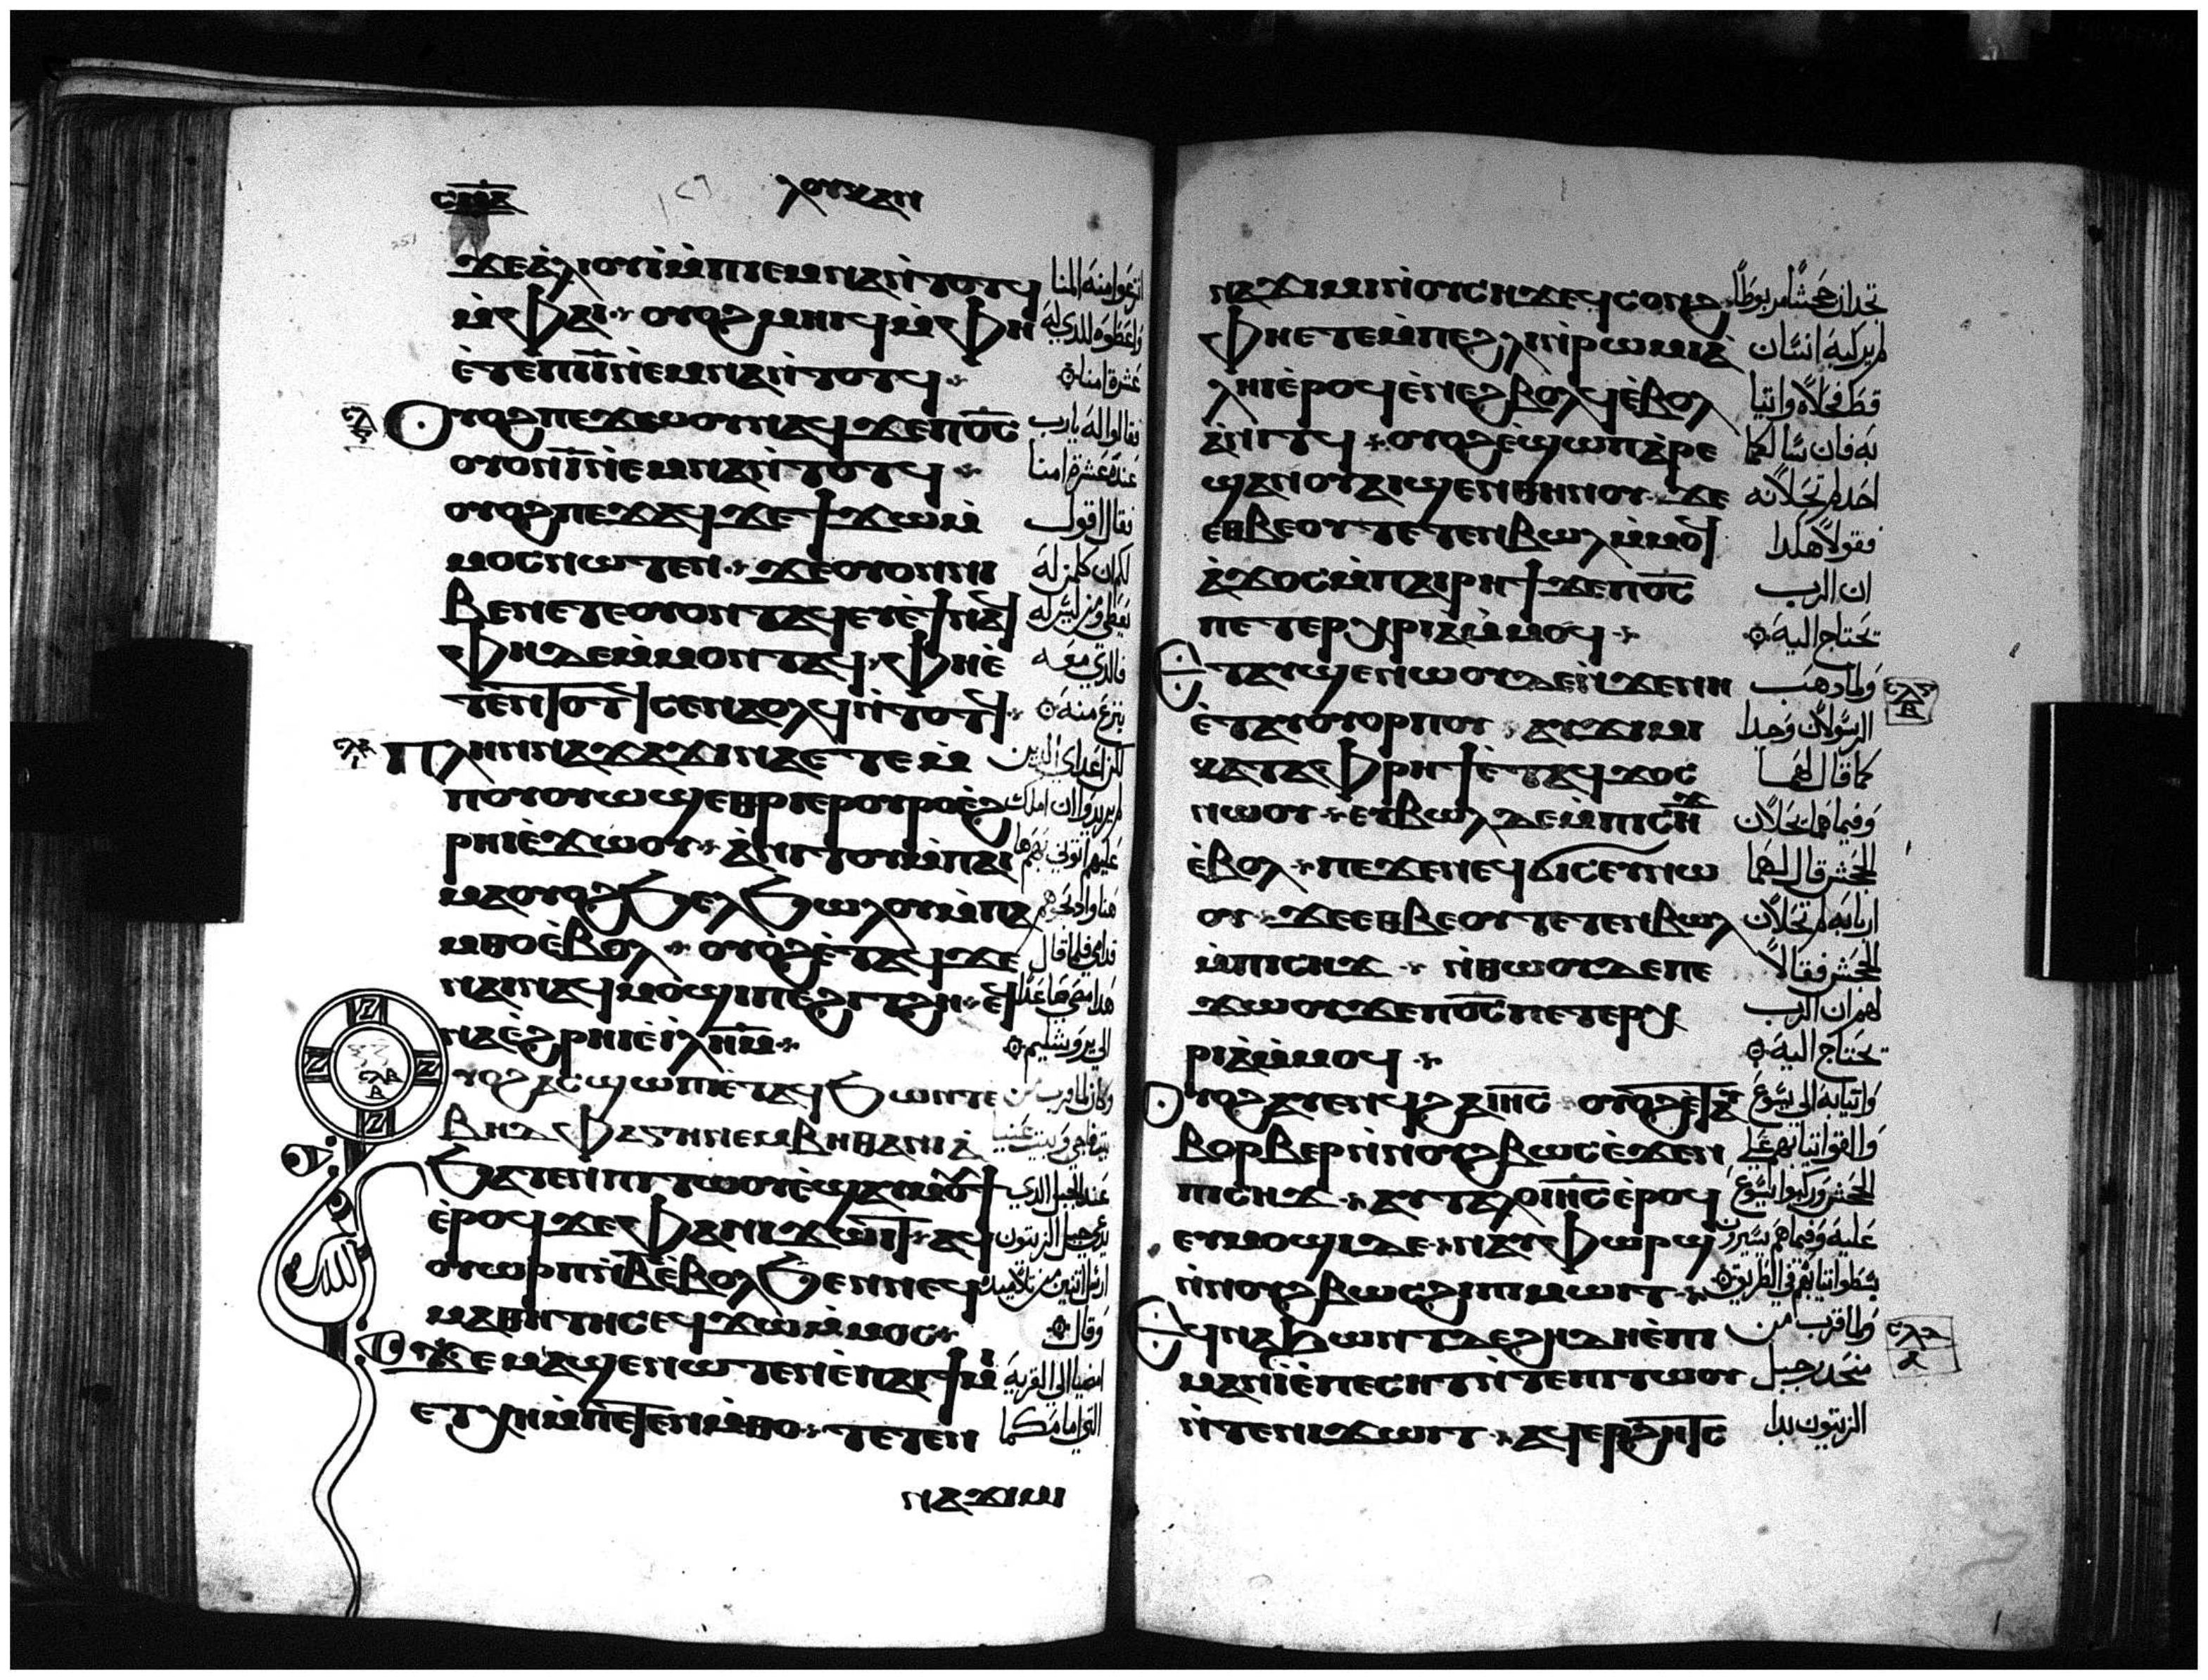 ⲥⲛ̅ⲁ̅
ⲗⲟⲩⲕⲁⲛ
ϫⲉⲁ̀ⲗⲓⲟⲩⲓ̀ⲙ̀ⲡⲓⲉⲙⲛⲁⲛ̀ⲧⲟⲧϥ
ⲙ̀ⲫⲁⲓ ⲟⲩⲟϩⲙⲏⲓϥⲙ̀ⲫⲏ
ⲉ̀ⲧⲉⲡⲓⲓ̅ⲛ̀ⲉⲙⲛⲁⲛ̀ⲧⲟⲧϥ
Ⲟⲩⲟϩⲡⲉϫⲱⲟⲩⲛⲁϥϫⲉⲡⲟ̅ⲥ̅
ⲟⲩⲟⲛⲓ̅ⲛ̀ⲉⲙⲛⲁⲛ̀ⲧⲟⲧϥ
ⲟⲩⲟϩⲡⲉϫⲁϥϫⲉϯϫⲱⲙ̀
ⲙⲟⲥⲛⲱⲧⲉⲛ ϫⲉⲟⲩⲟⲛⲛⲓ
ⲃⲉⲛⲉⲧⲉⲟⲩⲟⲛⲧⲁϥⲉⲩⲉ̀ϯⲛⲁϥ
ⲫⲏⲇⲉⲙ̀ⲙⲟⲛⲧⲁϥ ⲫⲏⲉ̀
ⲧⲉⲛⲧⲟⲧϥⲥⲉⲛⲁⲟⲗϥⲛ̀ⲧⲟⲧϥ
Ⲡⲗⲏⲛⲛⲁϫⲁϫⲓⲛⲁⲉⲧⲉⲙ̀
ⲡⲟⲩⲟⲩⲱϣⲉⲑⲣⲓⲉⲣⲟⲩⲣⲟⲉ̀ϩ
ⲣⲏⲓⲉ̀ϫⲱⲟⲩ ⲁ̀ⲛⲓⲧⲟⲩⲙ̀ⲡⲁⲓ
ⲙⲁⲟⲩⲟϩϧⲉⲗϧⲱⲗⲟⲩⲙ̀ⲡⲁ
ⲙⲑⲟⲉ̀ⲃⲟⲗ ⲟⲩⲟϩⲉ̀ⲧⲁϥϫⲉ
ⲛⲁⲓⲛⲁϥⲙⲟϣⲓⲡⲉϩⲓⲧϩⲏ ⲉϥ
ⲛⲁⲉ̀ϩⲣⲏⲓⲉ̀ⲓ̀ⲗⲏ̅ⲙ̅
ⲩⲟϩⲁⲥϣⲱⲡⲓⲉ̀ⲧⲁϥϧⲱⲛⲧⲉ
ⲃⲏⲇⲫⲁⲅⲏⲛⲉⲙⲃⲏⲑⲁⲛⲓⲁ̀
ϧⲁⲧⲉⲛⲡⲓⲧⲱⲟⲩⲉ̀ϣⲁⲩⲙⲟⲩϯ
ⲉ̀ⲣⲟϥϫⲉⲫⲁⲛⲓϫⲱⲓⲧ ⲁϥ
ⲟⲩⲱⲣⲡⲛ̀ⲃ̅ⲉ̀ⲃⲟⲗϧⲉⲛⲛⲉϥ
ⲙⲁⲑⲏⲧⲏⲥⲉϥϫⲱⲙ̀ⲙⲟⲥ
ϫⲉⲙⲁϣⲉⲛⲱⲧⲉⲛⲉ̀ⲡⲁⲓϯⲙⲓ
ⲉⲧⲭⲏⲙ̀ⲡⲉⲧⲉⲛⲙ̀ⲑⲟ ⲧⲉⲧⲉⲛ
ⲛⲁϫⲓⲙⲓ
انزعوا منه المنا
واعطوه للذي له
عشرة امنا
فقالوا له يارب
عنده عشرة امنا
فقال اقول
لكم ان كل من له
يعطى ومن ليس له
فالذي معه
ينزع منه
لكن اعداي الذين
لم يريدوا ان املك
عليهم اتوني بهم ها
هنا واذبحوهم
قدامي فلما قال
هذا مضى صاعدا
الى يروشليم
وكان لما قرب من
بيت فاجي وبيت عنيا
عند الجبل الذي
يدعى جبل الزيتون
ارسل اثنين من تلاميذه
وقال
امضيا الى القرية
التي امامكما
ⲛⲁϫⲓⲙⲓⲛ̀ⲟⲩⲥⲏϫⲉϥⲥⲟⲛϩ
ⲫⲏⲉⲧⲉⲙ̀ⲡⲉϩⲗⲓⲛ̀ⲣⲱⲙⲓⲁ̀
ⲗⲏⲓⲉ̀ⲣⲟϥⲉ̀ⲛⲉϩⲃⲟⲗϥⲉ̀ⲃⲟⲗ
ⲁ̀ⲛⲓⲧϥ ⲟⲩⲟϩⲉ̀ϣⲱⲡⲁ̀ⲣⲉ
ϣⲁⲛⲟⲩⲁⲓϣⲉⲛⲑⲏⲛⲟⲩ ϫⲉ
ⲉⲑⲃⲉⲟⲩⲧⲉⲧⲉⲛⲃⲱⲗⲙ̀ⲙⲟϥ
ⲁ̀ϫⲟⲥⲙ̀ⲡⲁⲓⲣⲏϯϫⲉⲡⲟ̅ⲥ̅
ⲡⲉⲧⲉⲣⲭⲣⲓⲁⲙ̀ⲙⲟϥ
Ⲉⲧⲁⲩϣⲉⲛⲱⲟⲩⲇⲉⲛ̀ϫⲉⲛⲏ
ⲉ̀ⲧⲁⲩⲟⲩⲟⲣⲡⲟⲩ ⲁⲩϫⲓⲙⲓ
ⲕⲁⲧⲁⲫⲣⲏϯⲉ̀ⲧⲁϥϫⲟⲥ
ⲛⲱⲟⲩ ⲉⲩⲃⲱⲗⲇⲉⲙ̀ⲡⲓⲥⲏϫ
ⲉ̀ⲃⲟⲗ ⲡⲉϫⲉⲛⲉϥϭⲓⲥⲉⲩⲛⲱ
ⲟⲩ ϫⲉⲉⲑⲃⲉⲟⲩⲧⲉⲧⲉⲛⲃⲱⲗ
ⲙ̀ⲡⲓⲥⲏϫ ⲛ̀ⲑⲱⲟⲩⲇⲉⲡⲉ
ϫⲱⲟⲩϫⲉⲡⲟ̅ⲥ̅ⲡⲉⲧⲉⲣⲭ
ⲣⲓⲁⲙ̀ⲙⲟϥ
Ⲟⲩⲟϩⲁⲩⲉⲛϥϩⲁⲓⲏ̅ⲥ̅ ⲟⲩⲟϩⲉ̀ⲧⲁⲩ
ⲃⲟⲣⲃⲉⲣⲛ̀ⲛⲟⲩϩⲃⲱⲥⲉ̀ϫⲉⲛ
ⲡⲓⲥⲏϫ ⲁⲩⲧⲁⲗⲟⲓⲏ̅ⲥ̅ⲉ̀ⲣⲟϥ
ⲉⲩⲙⲟϣⲓⲇⲉ ⲛⲁⲩⲫⲱⲣϣ
ⲛ̀ⲛⲟⲩϩⲃⲱⲥϩⲓⲡⲓⲙⲱⲓⲧ
Ⲉϥⲛⲁϧⲱⲛⲧⲇⲉϩⲏⲇⲏⲉ̀ⲡⲓ
ⲙⲁⲛⲓ̀ⲉ̀ⲡⲉⲥⲏⲧⲛ̀ⲧⲉⲡⲓⲧⲱⲟⲩ
ⲛ̀ⲧⲉⲛⲓϫⲱⲓⲧ ⲁϥⲉⲣϩⲏⲧⲥ
تجدان جحشا مربوطا
لم يركبه انسان
قط فحلاه واتيا
به فان سالكما
احد لم تحلانه
فقولا هكذا
ان الرب
يحتاج اليه
ولما ذهب
الرسولان وجدا
كما قال لهما
وفيما هما يحلان
الجحش قال لهما
اربابه لم تحلان
الجحش فقالا
لهم ان الرب
يحتاج اليه
واتيا به الى يسوع
والقوا ثيابهم على
الجحش وركبوا يسوع
عليه وفيما هم يسيرون
بسطوا ثيابهم في الطريق
ولما قرب من
منحدر جبل
الزيتون بدا